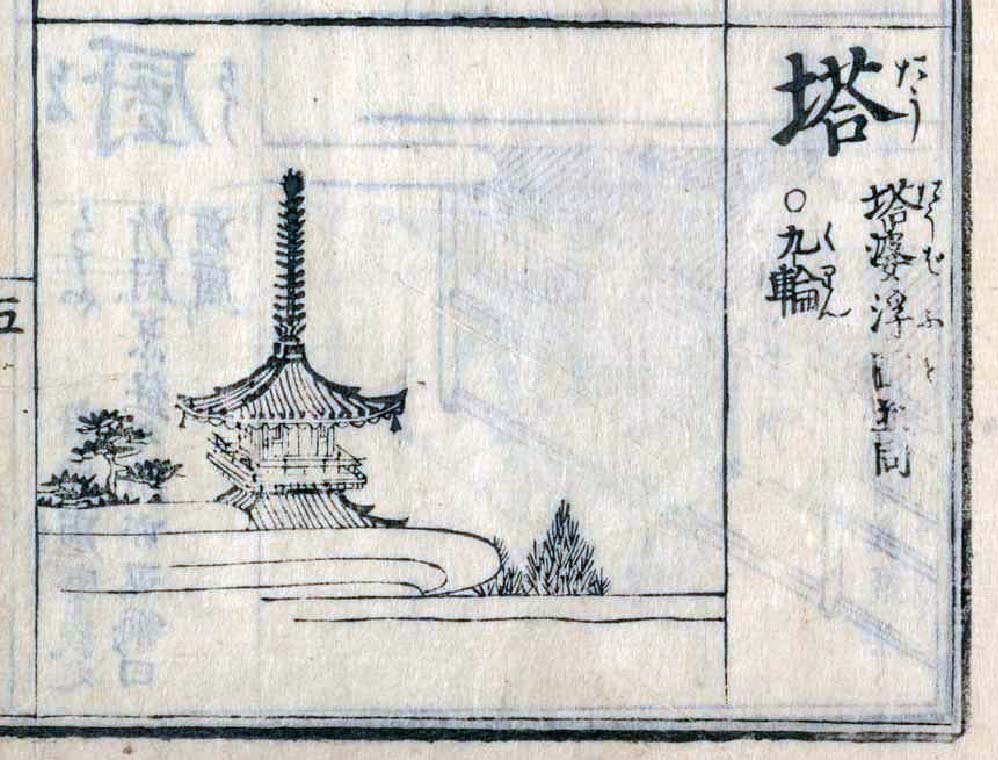 塔
たう
塔婆浮図並同
たうば ふと
○九輪
くりん